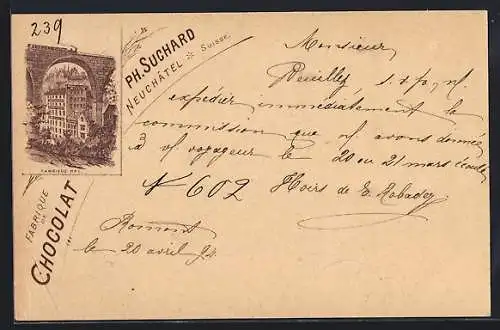 239
PH. SUCHARD
NEUCHÂTEL * SUISSE.
FABRIQUE N° 1.
FABRIQUE
DE
CHOCOLAT
Monsieur
Veuillez s. v. p. nf.
expédier immédiatement la
commission que nf avons donnée
à vf voyageur le 20 ou 21 mars écoulé
N 602 Hoirs de E. Robadey
Romont
le 20 avril 94